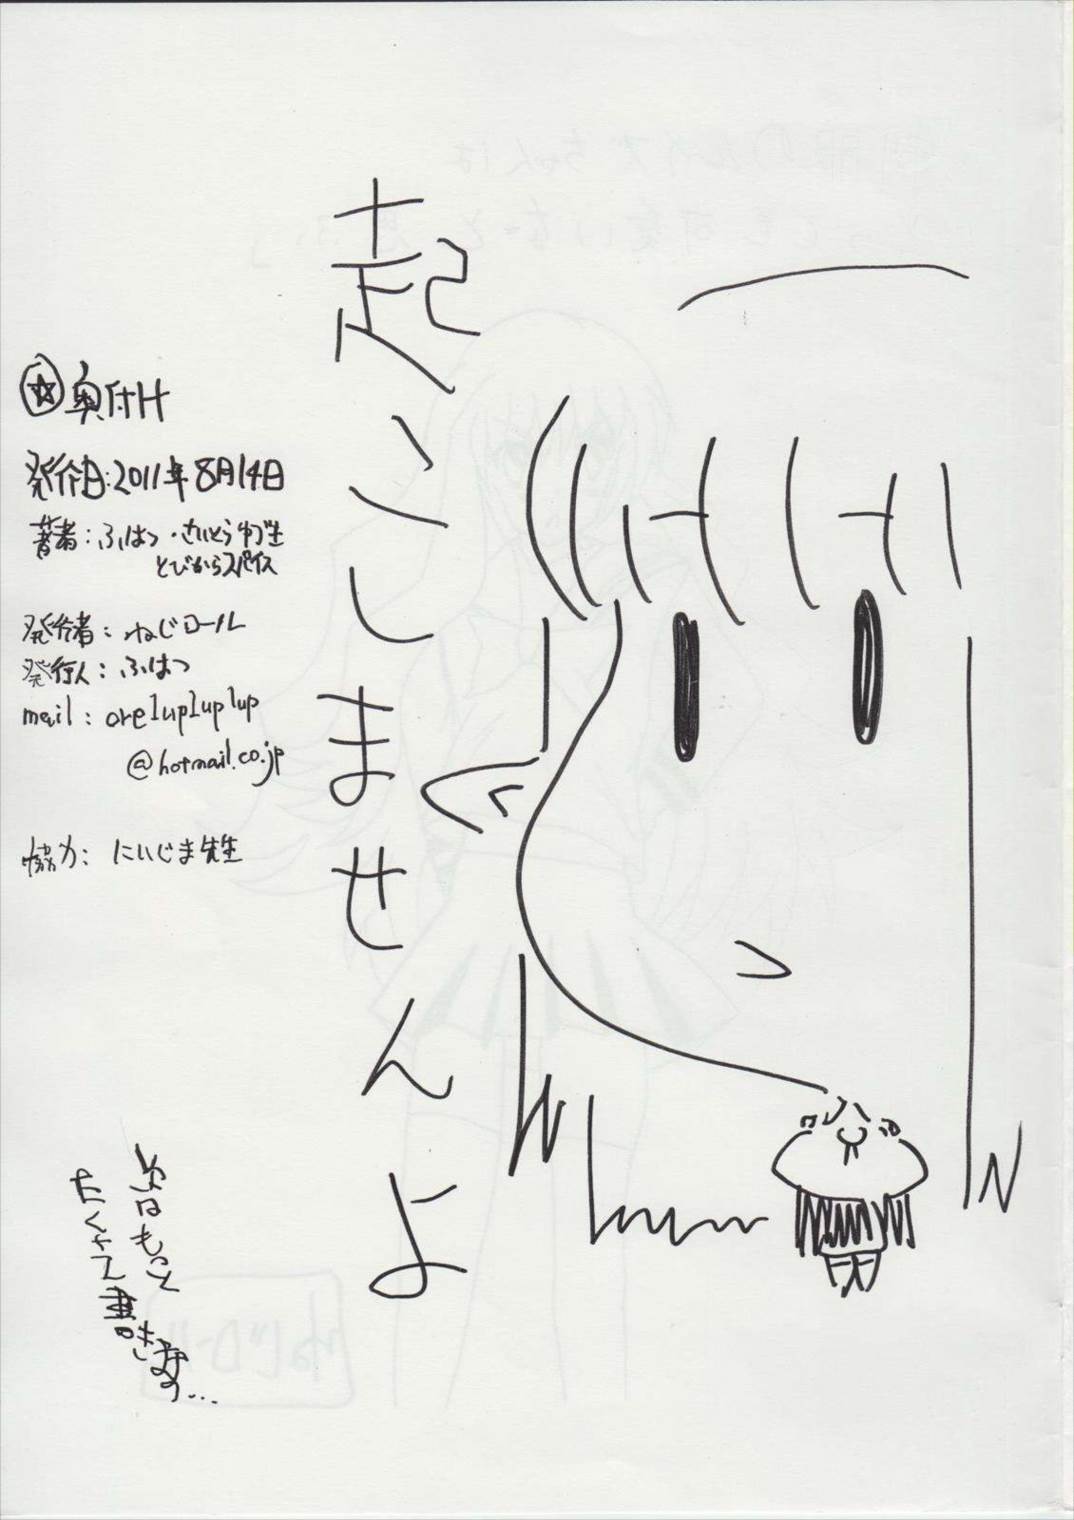 起こしませんよ
奥付け
発行日:2011年8月14日
著者:ふはつ・さいとう弥生
とびからスパイス
発行者:ねじロール
発行人:ふはつ
mail:ore1up1up1up
@hotmail.co.jp
協力:にいじま先生
次はもっと
たくさん書きます…